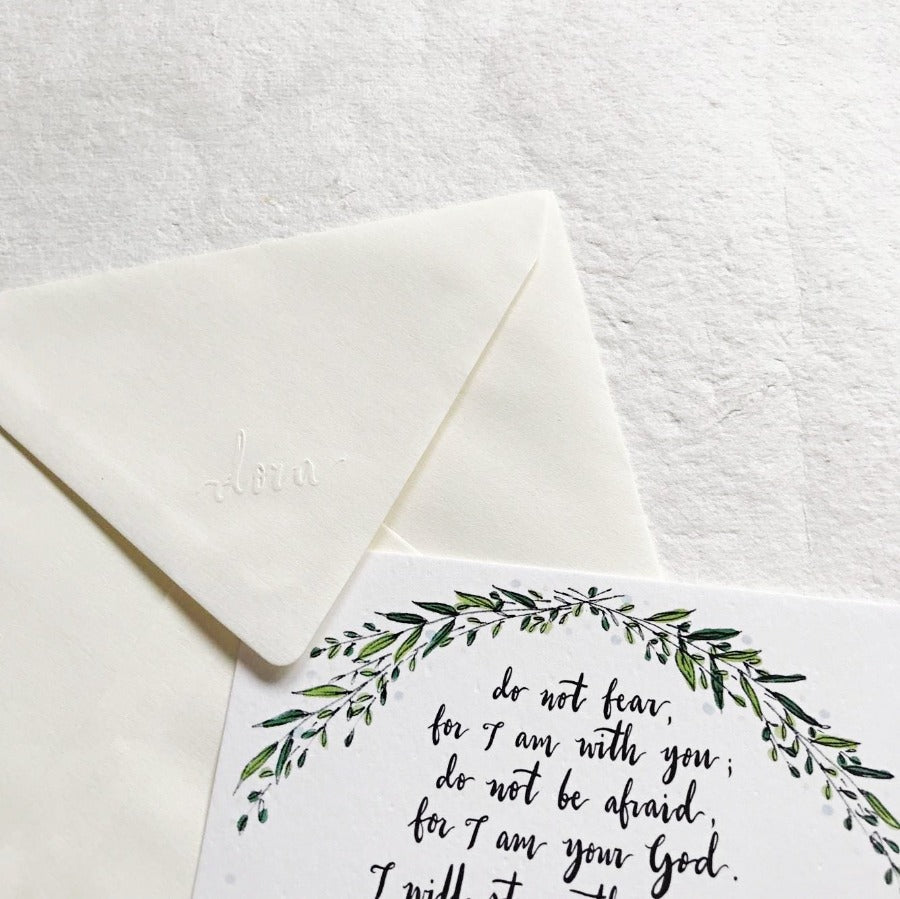 dora
do not fear,
for I am with you;
do not be afraid,
for I am your God.
I will